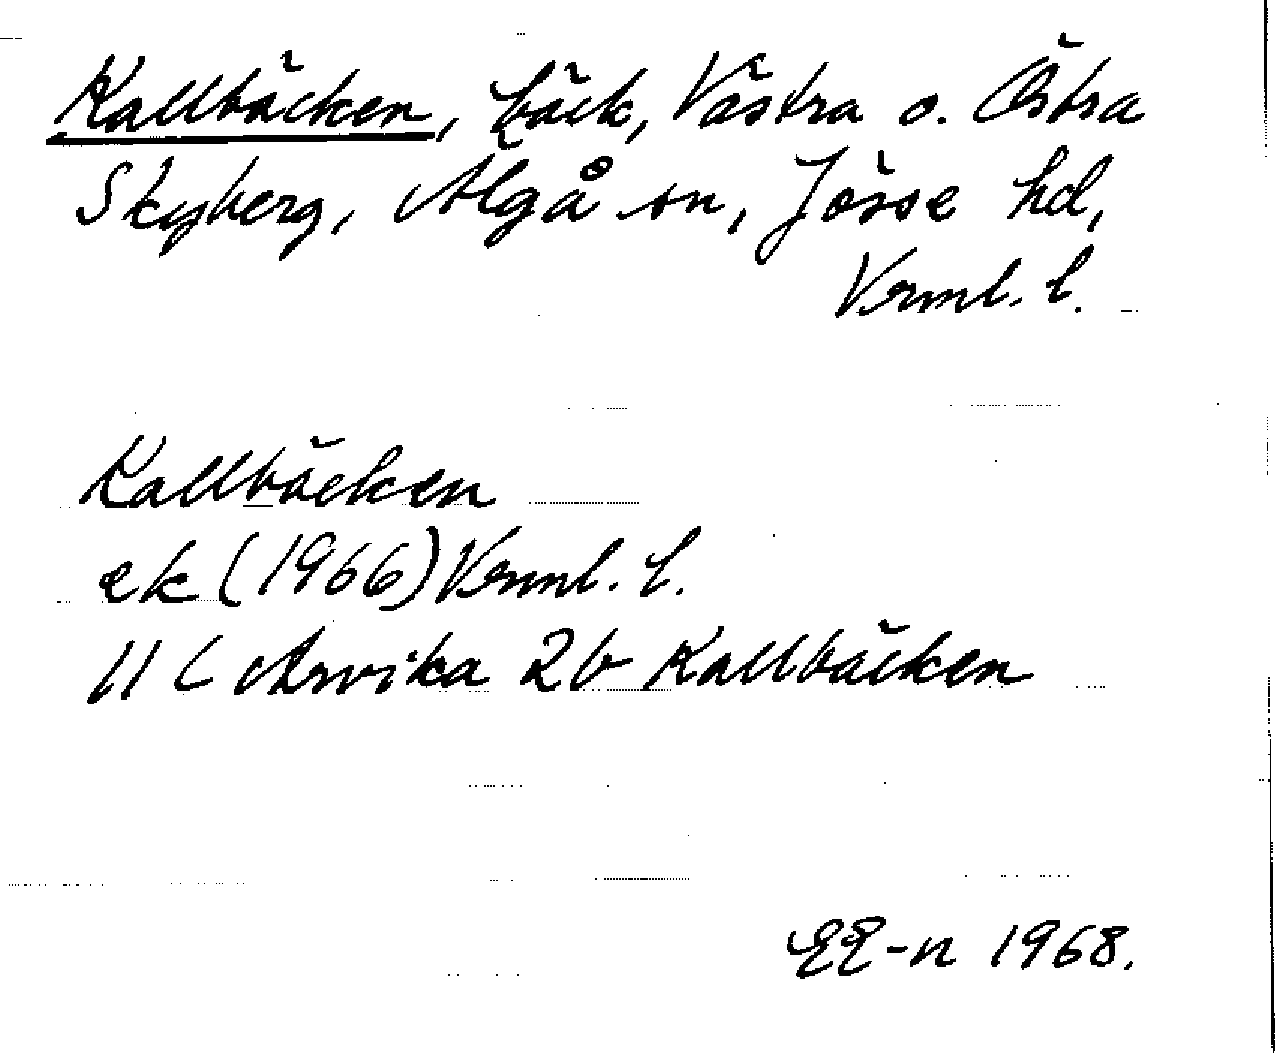 Kallbäcken, bäck, Västra o. Östra
Skyberg, Älgå sn, Jösse hd,
Verml. l.
Kallbäcken
ek (1966) Verml. l.
11 C Arvika 2b Kallbäcken
EE-n 1968.